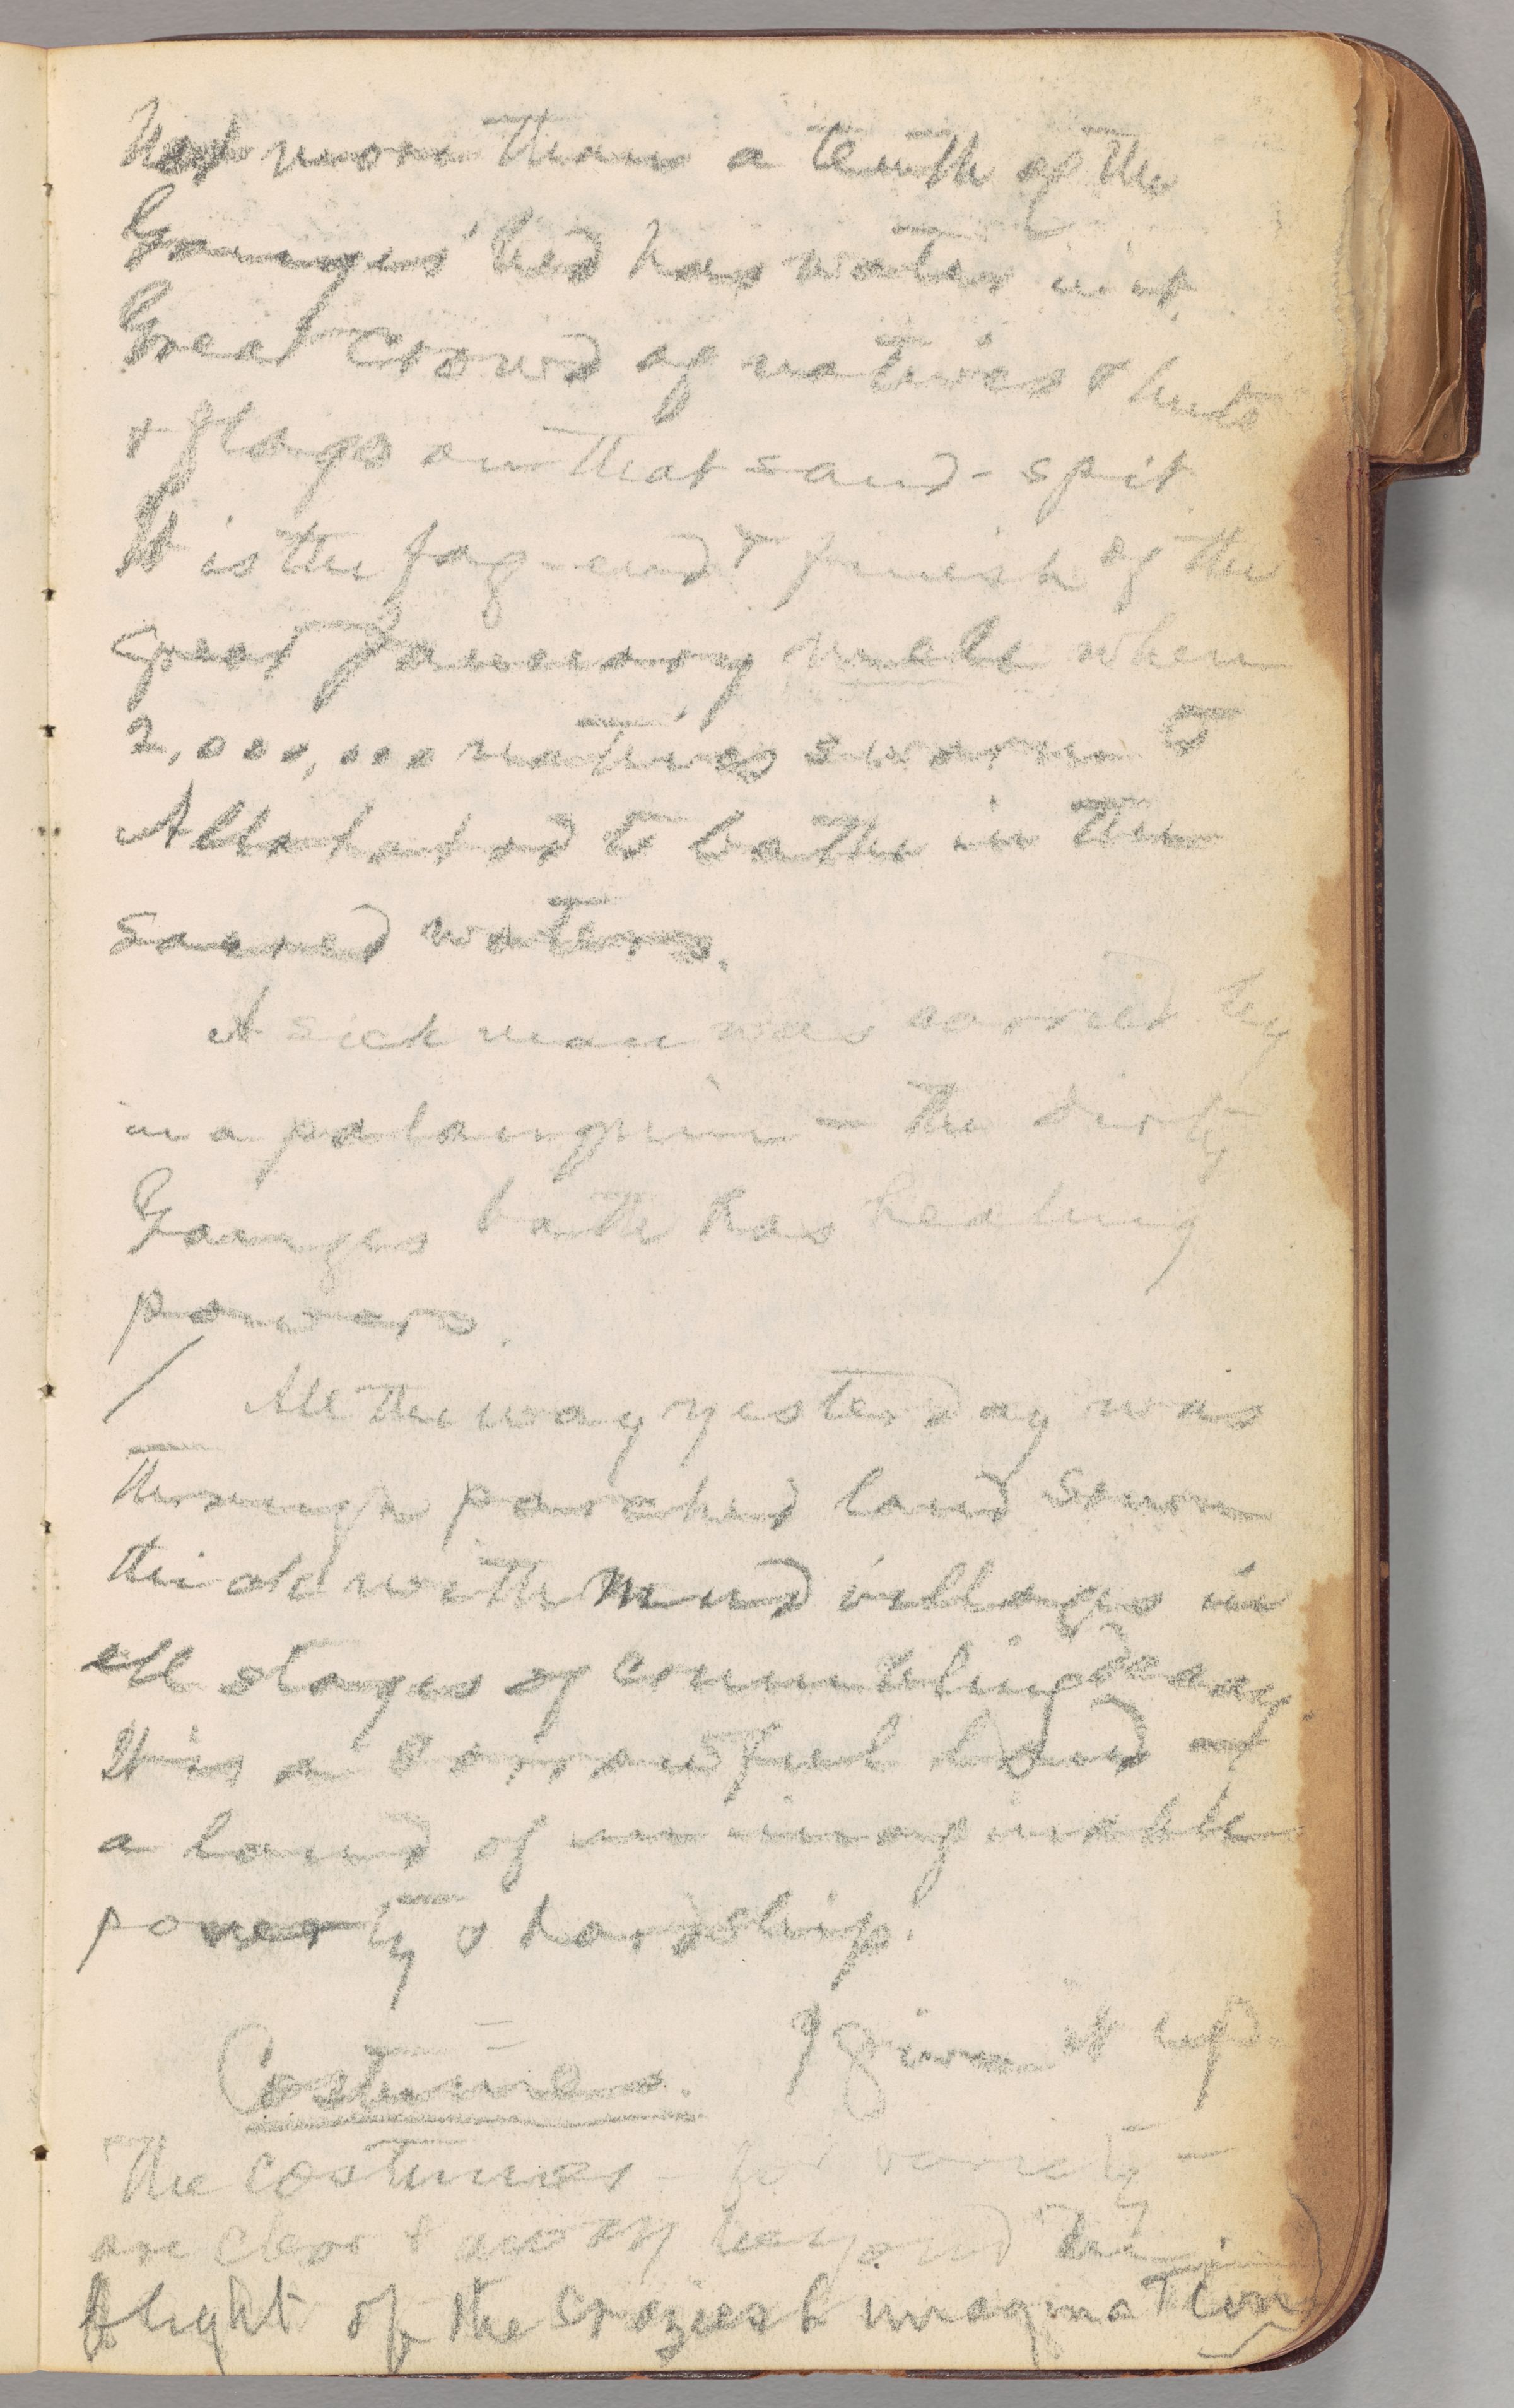 Not more than a tenth of the
Ganges' bed has water in it.
Great crowd of natives & huts
& flags on that sand-spit
It is the fag-end & finish of the
great January mela when
2,000,000 natives swarm to
Allahabad to bathe in the
sacred waters.
A sick man was carried by
in a palanquin — the dirty
Ganges bath has healing
powers.
/ All the way yesterday was
through parched land sown
thick with mud villages in
all stages of crumbling decay
It is a sorrowful land —
a land of unimaginable
poverty & hardship.
Costumes. I give it up.
The costumes — for variety —
are clear & away beyond the
flight of the craziest imagination